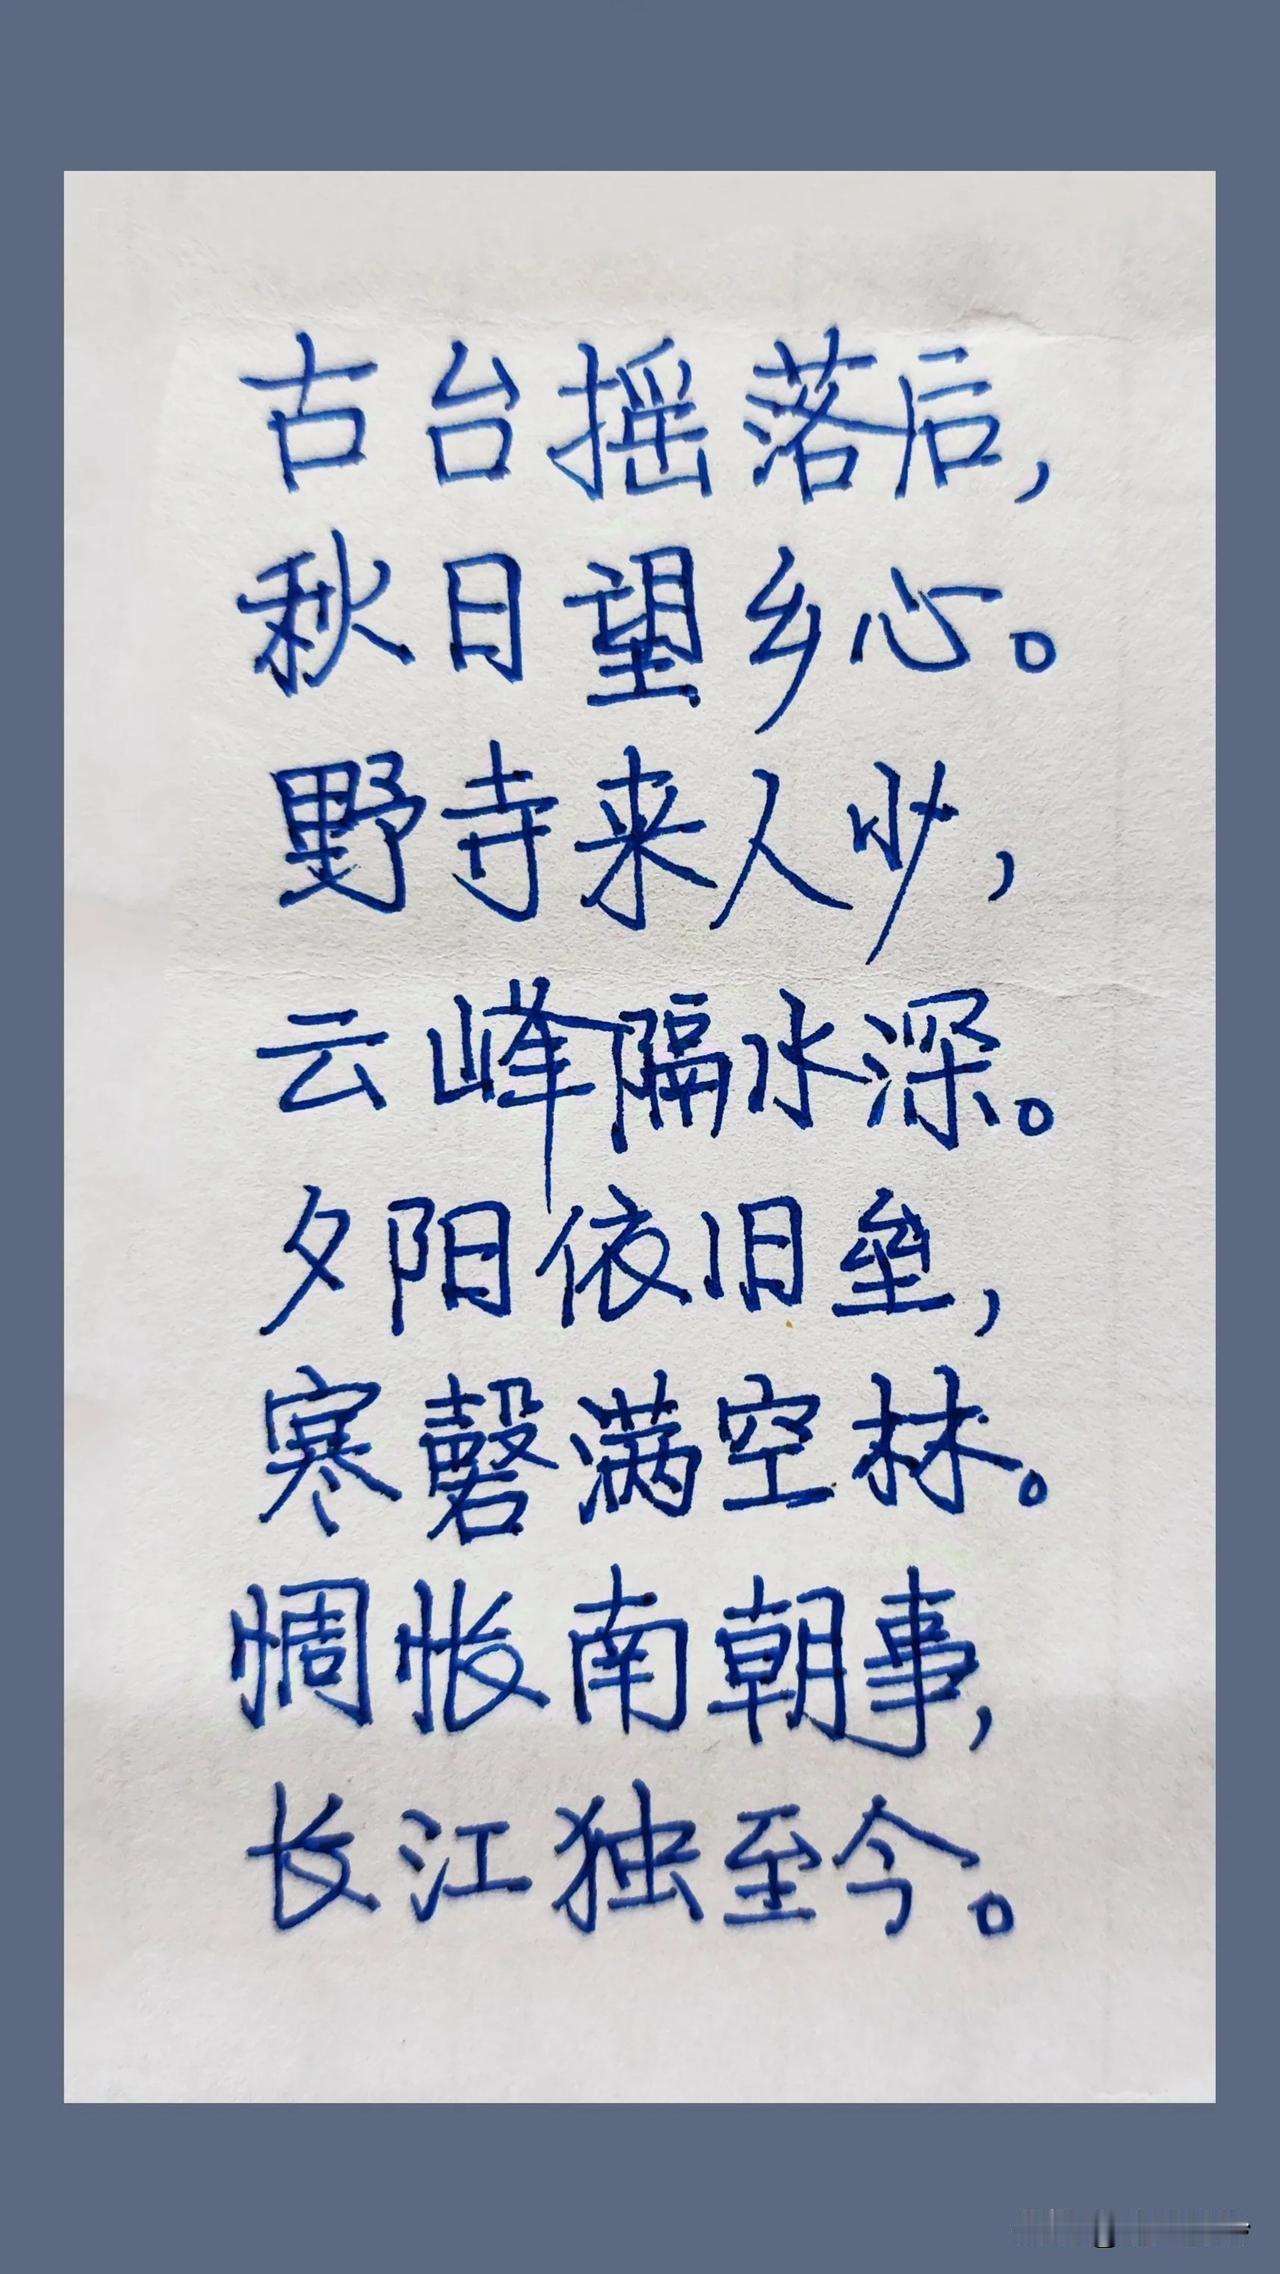 古台摇落后，
秋日望乡心。
野寺来人少，
云峰隔水深。
夕阳依旧垒，
寒磬满空林。
惆怅南朝事，
长江独至今。